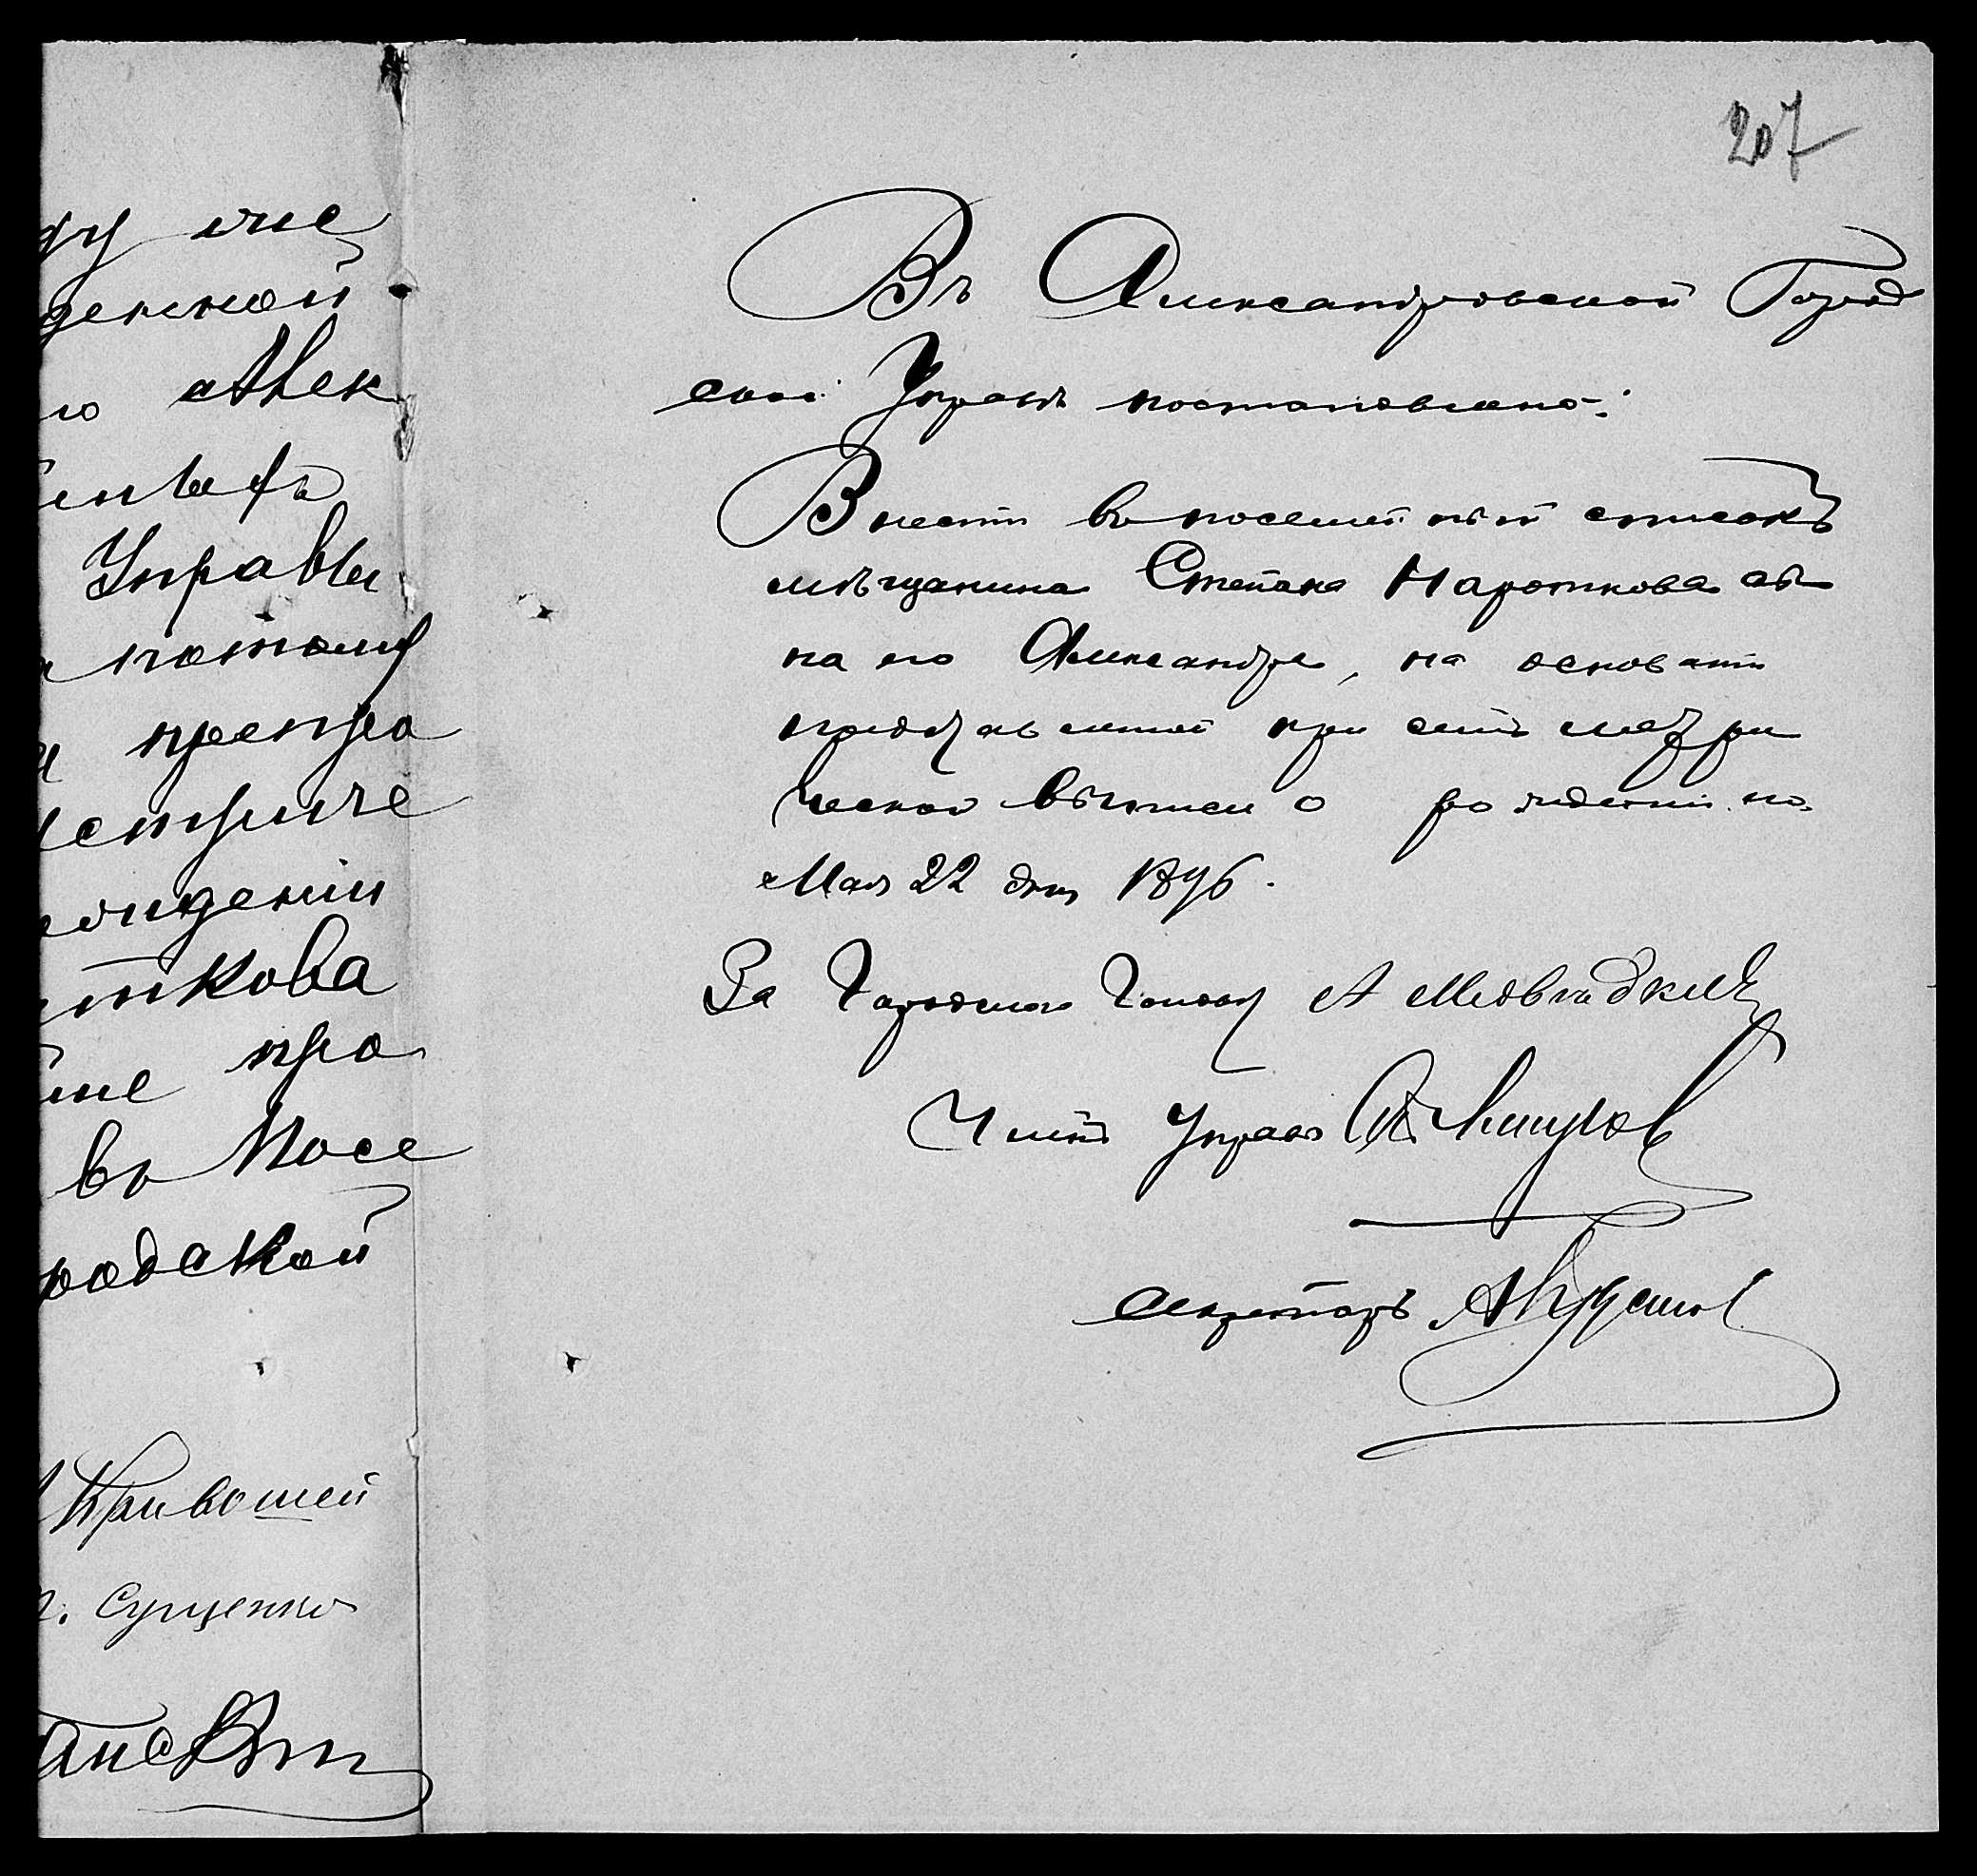 207
ду ѣще
денной
ю Алек
Управы
и потому
и препро
метриче
рожденіи
откова
про
въ Посе
родской
Кривошей
Сущенко
Въ Александровской Город
ской Управѣ постановлено:
Внести въ посемейный списокъ
мѣщанина Степана Нароткова сы
на его Александра, на основаніи
представленной при семъ метри
ческой выписи о рожденіи его
Мая 22 дня 1896.
За Городского Голову А Медвѣдкинъ
Членъ Управы
Секретарь